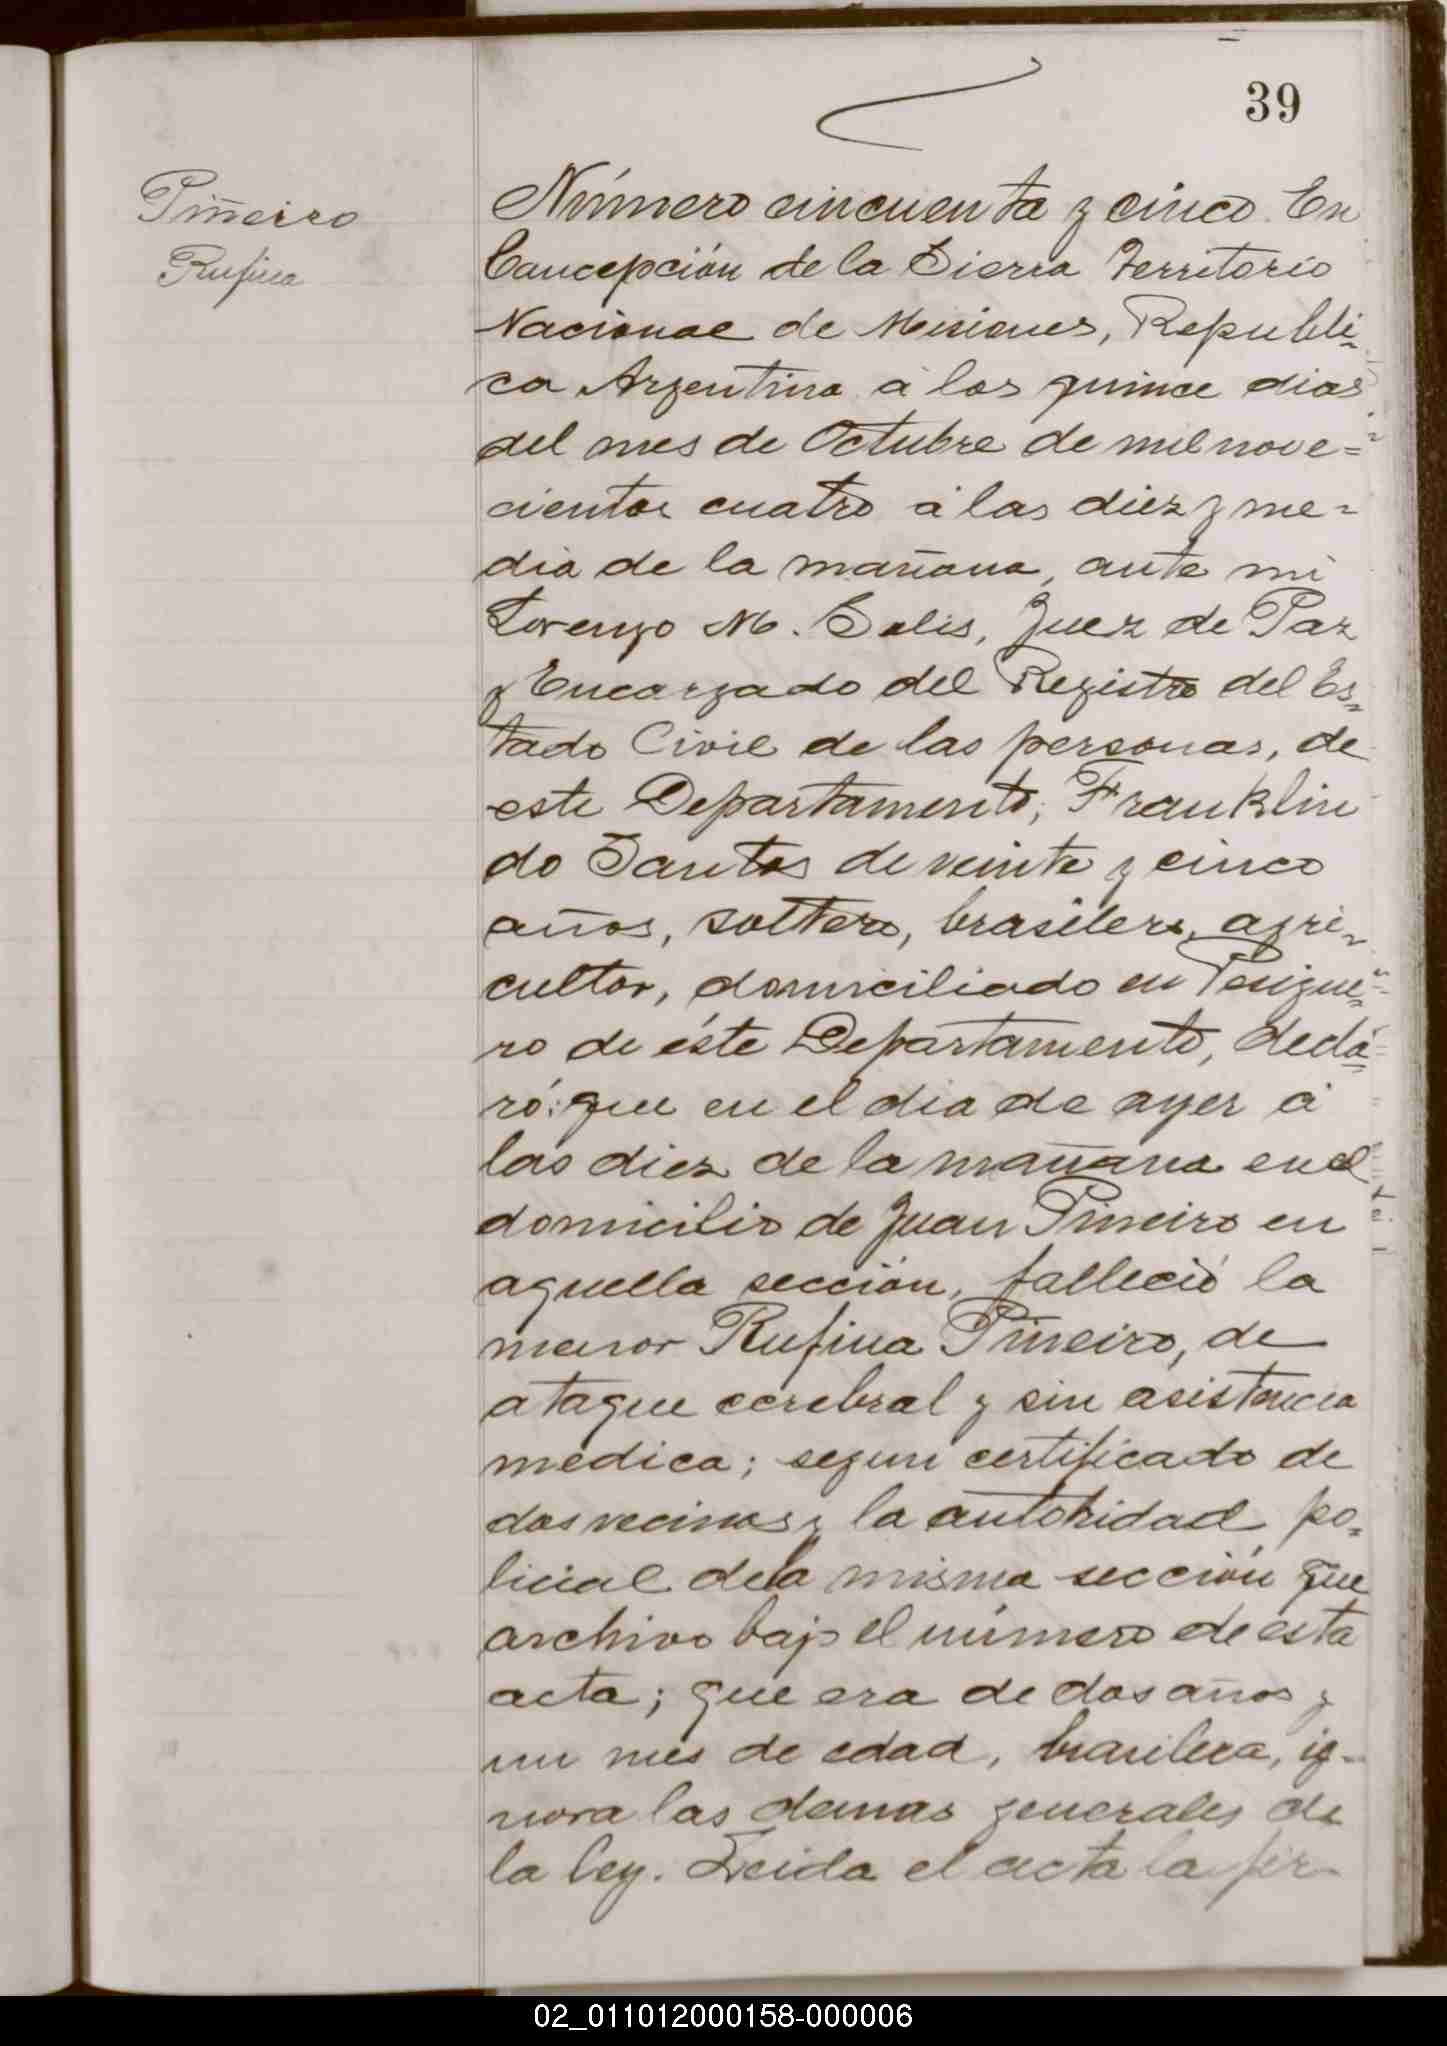 39
Piñeiro
Rufina
Número cincuenta y cinco. En
Concepción de la Sierra Territorio
Nacional de Misiones, Republi-
ca Argentina á los quince dias
del mes de Octubre de mil nove=
cientos cuatro á las diez y me-
dia de la mañana, ante mi
Lorenzo M. Solis, Juez de Paz
y Encargado del Registro del Es-
tado Civil de las personas, de
este Departamento; Franklin
do Santos de veinte y cinco
años, soltero, brasilero, agri-
cultor, domiciliado en Persigue-
ro de éste Departamento, decla-
ró: que en el dia de ayer á
las diez de la mañana en el
domicilio de Juan Piñeiro en
aquella sección, falleció la
menor Rufina Piñeiro, de
ataque cerebral y sin asistencia
medica; segun certificado de
dos vecinos y la autoridad po-
licial de la misma sección que
archivo bajo el número de esta
acta; que era de dos años y
un mes de edad, brasilera, ig-
nora las demas generales de
la ley. Leida el acta la fir-
02_011012000158-000006